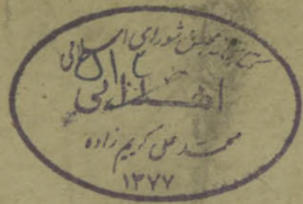 کتابخانه مجلس شورای اسلامی
اهدائی
محمد علی کریم زاده
۱۳۷۷